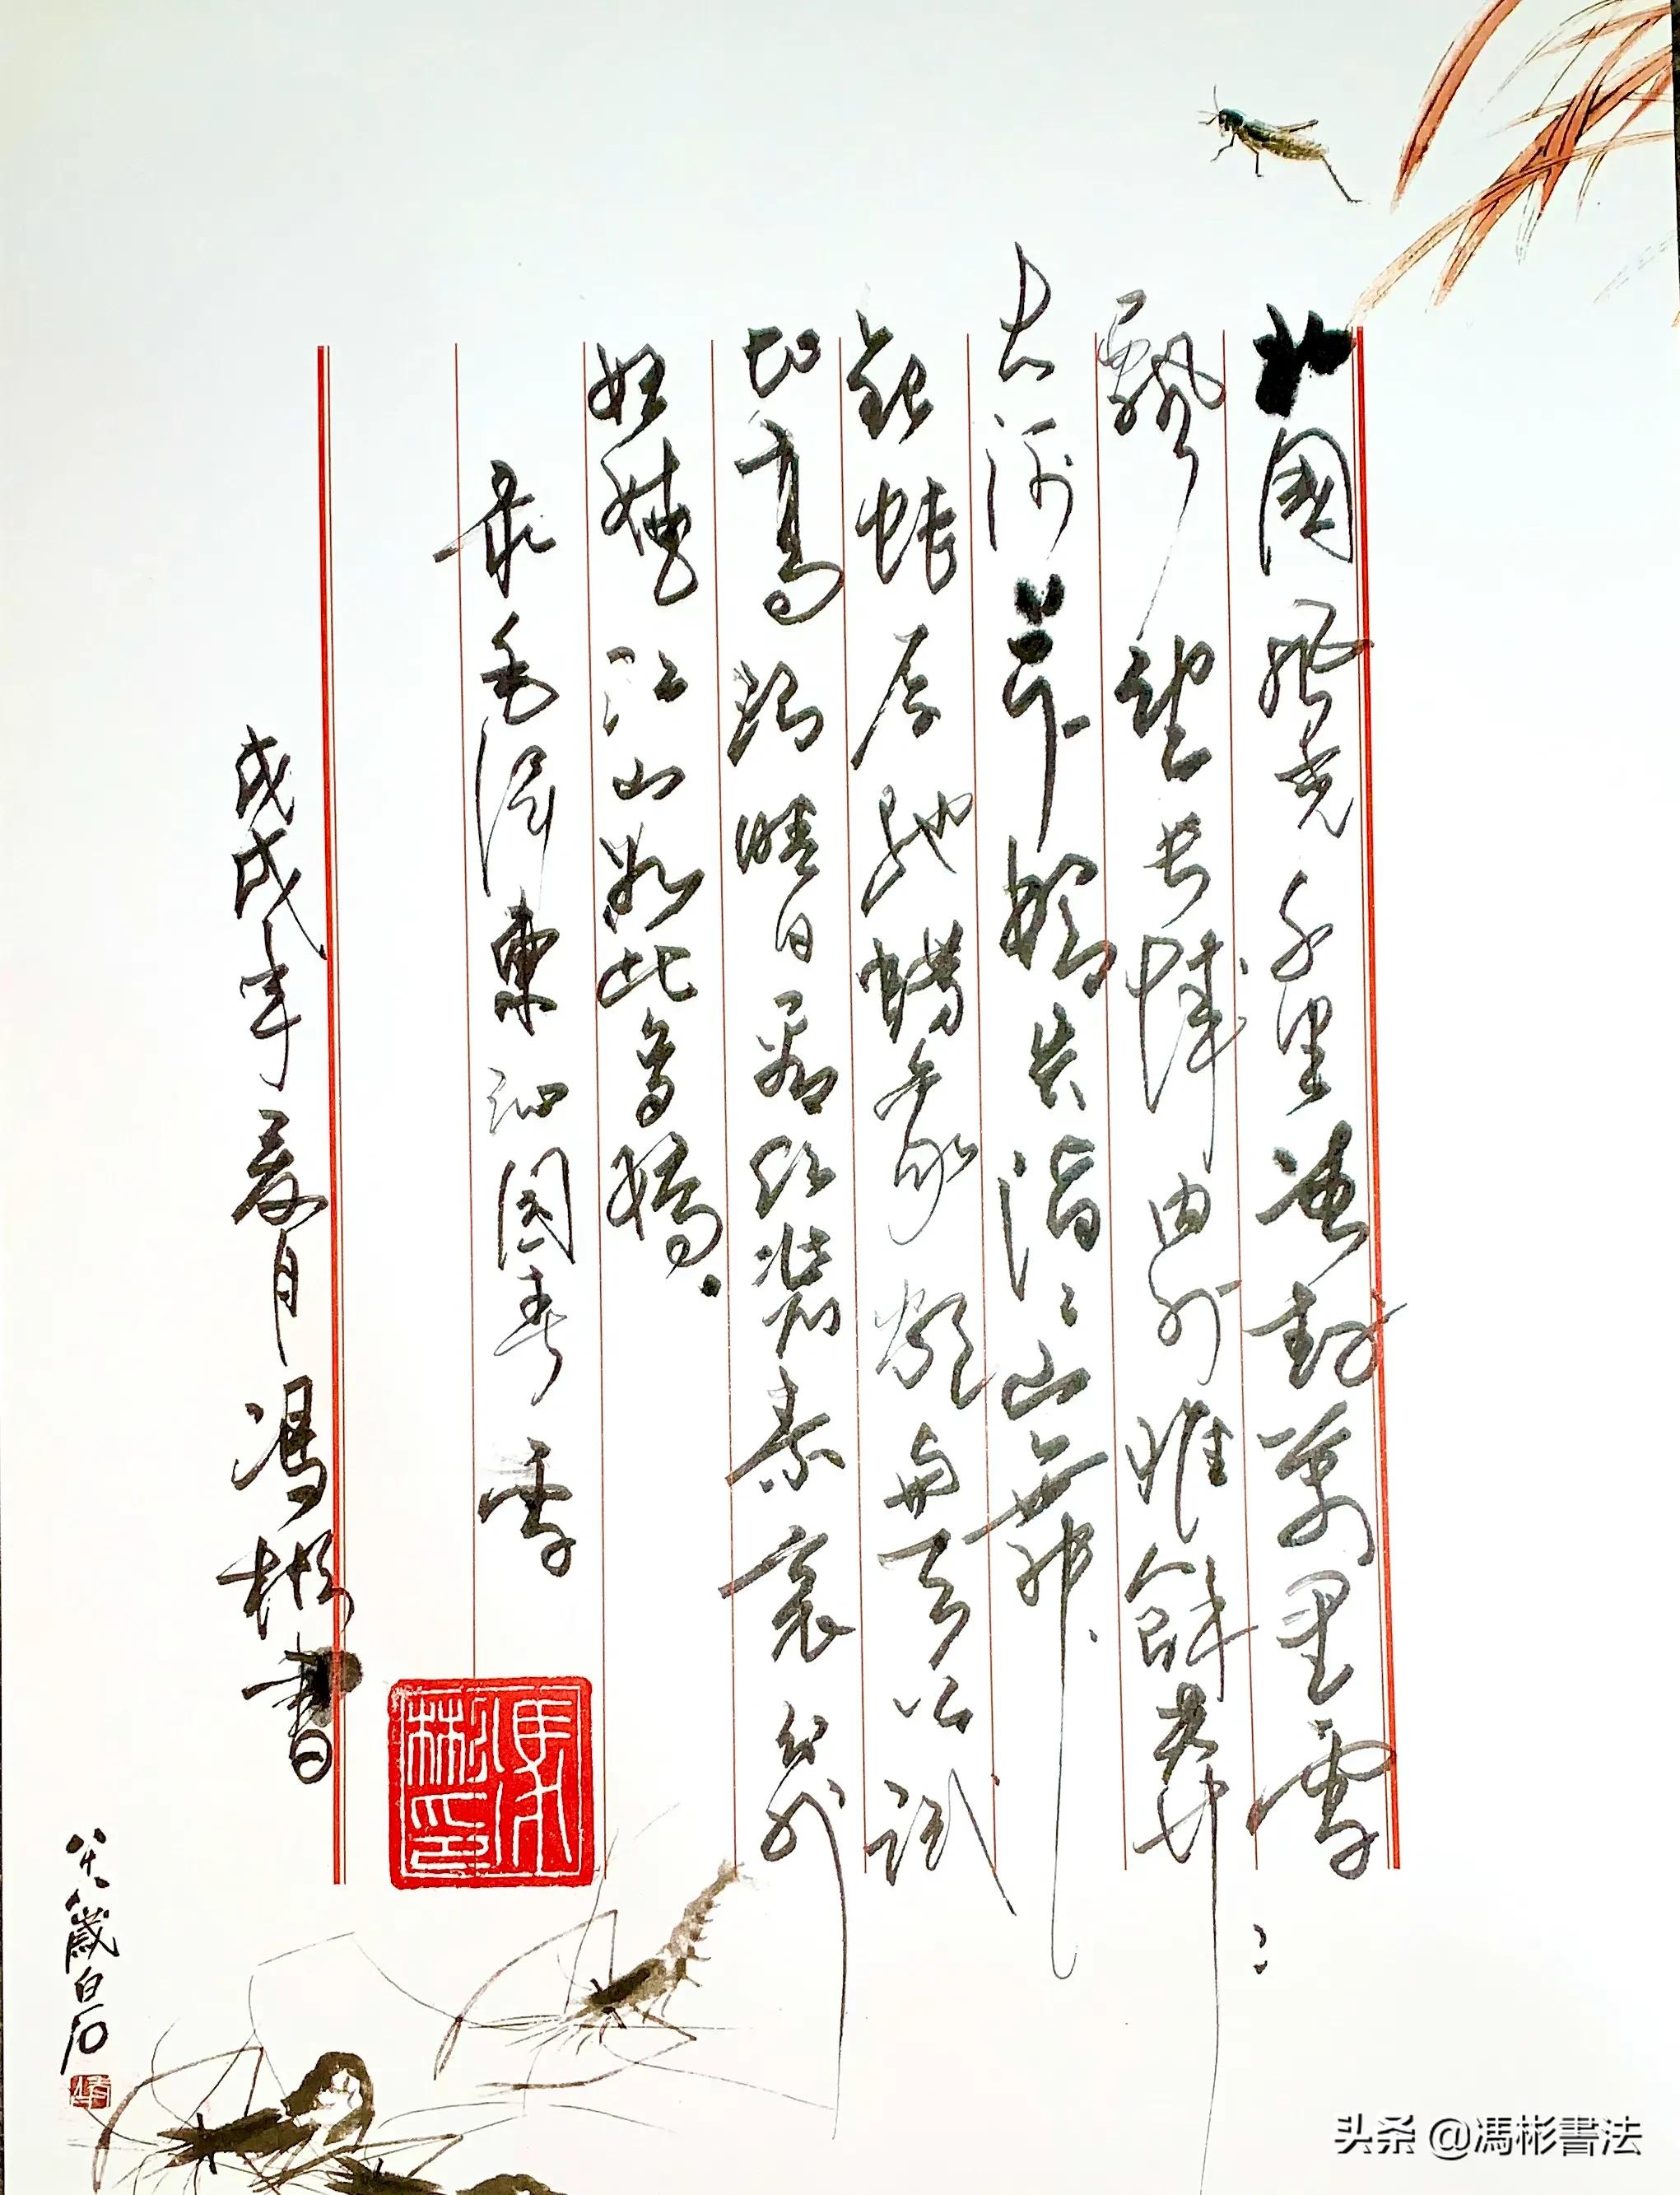 北國風光千里冰封萬里雪
飄望長城内外惟餘莽〻
大河上下頓失滔〻山舞
銀蛇原馳蠟象欲與天公試
比高須晴日看紅裝素裹分外
妖嬈江山如此多嬌。
录毛澤東沁園春雪
戊戌年夏月馮彬書
馮彬印
八十八歲白石
头条 @馮彬書法